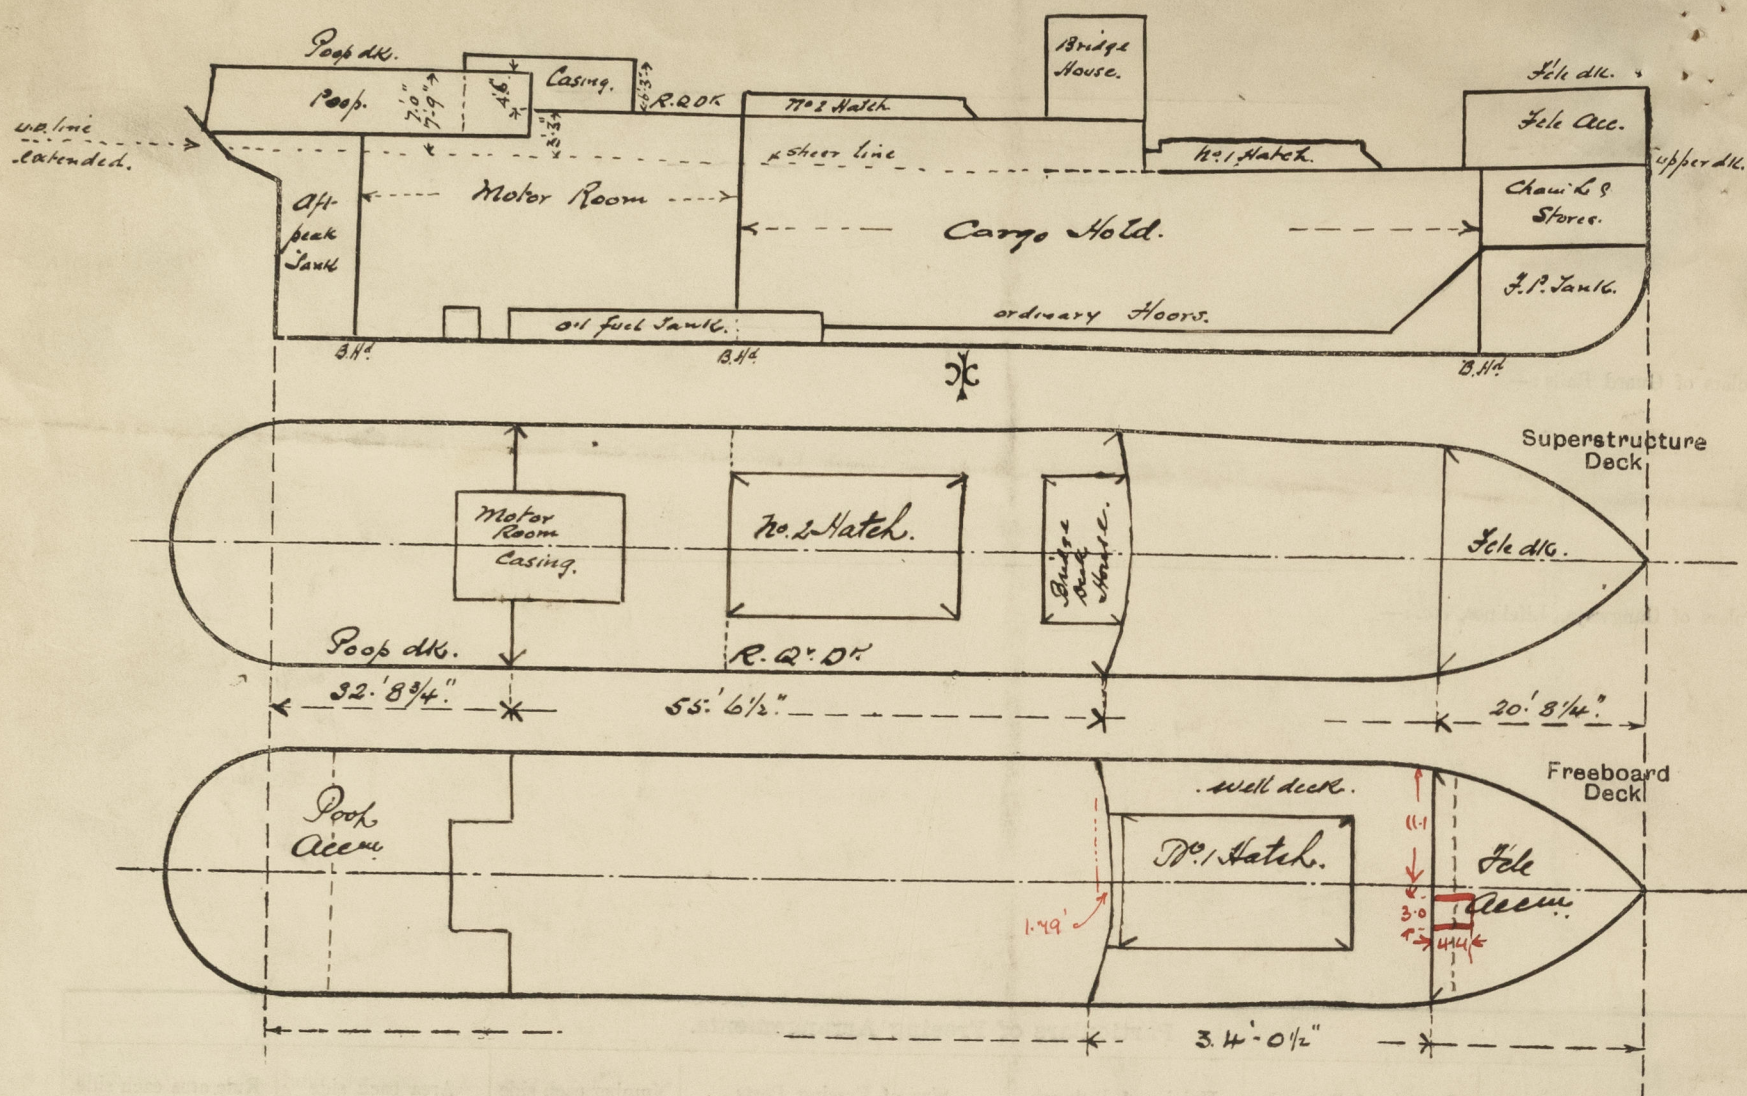 Poop dk.
Poop.
7'.0"
7'-9"
4'.6"
Casing.
6'.3"
3'.3"
R.Q Dk
No 2 Hatch
Bridge
House.
Fcle dk.
Fcle Acc.
line
extended.
sheer line
No.1 Hatch.
upper dk.
Aft
peak
Tank
Motor Room
Cargo Hold.
Stores.
F.P. Tank.
oil fuel Tank.
ordinary Floors.
B.Hd
B.Hd
B.Hd
Superstructure
Deck
Motor
Room
Casing.
No. 2 Hatch.
Bridge
Deck
House.
Fcle dk.
Poop dk.
R. Qr. Dk.
32.' 8 3/4"
55.' 6 1/2"
20.' 8 1/4"
Freeboard
Deck
Poop
Accm
well deck.
No. 1 Hatch.
11.1
Fcle
Accm.
3.0
1.79'
34'-0 1/2"